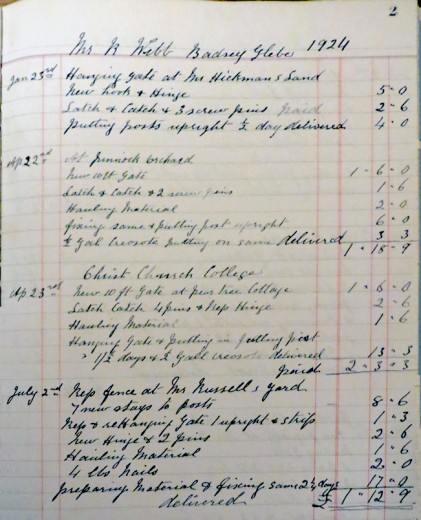 2
Mr R Webb Badsey Glebe 1924
Jan 23rd Hanging Gate at Mr Hickmans Land
New hook & Hinge 5 - 0
Latch & Catch & 3 screw pins paid 2 - 6
Putting posts upright ½ day delivered 4 - 0
Ap 22nd At Pinnock Orchard
New 10 ft Gate 1 - 6 - 0
Latch & Catch & 2 screw pins 1 - 6
Hauling Material 2 - 0
fixing same & putting post upright 6 - 0
½ Gall creosote putting on same delivered 3 3
1 - 18 - 9
Christ Church College
Ap 23rd New 10 ft Gate at Pear Tree Cottage 1 - 6 - 0
Latch Catch 4 pins & Rep Hinge 2 - 6
Hauling Material 1 - 6
Hanging Gate & Putting in putting post
" 1½ days & ½ Gall creosote delivered 13 - 3
Paid 2 - 3 - 3
July 2nd Rep fence at Mr Russell's yard
7 new stays to posts 8 - 6
Rep & reHanging Gate 1 upright & strips 1 - 3
New Hinge & 2 pins 2 - 6
Hauling Material 1 - 6
4 lbs nails 2 - 0
preparing Material & fixing same 2¼ days 17 - 0
delivered £ 1 - 12 - 9